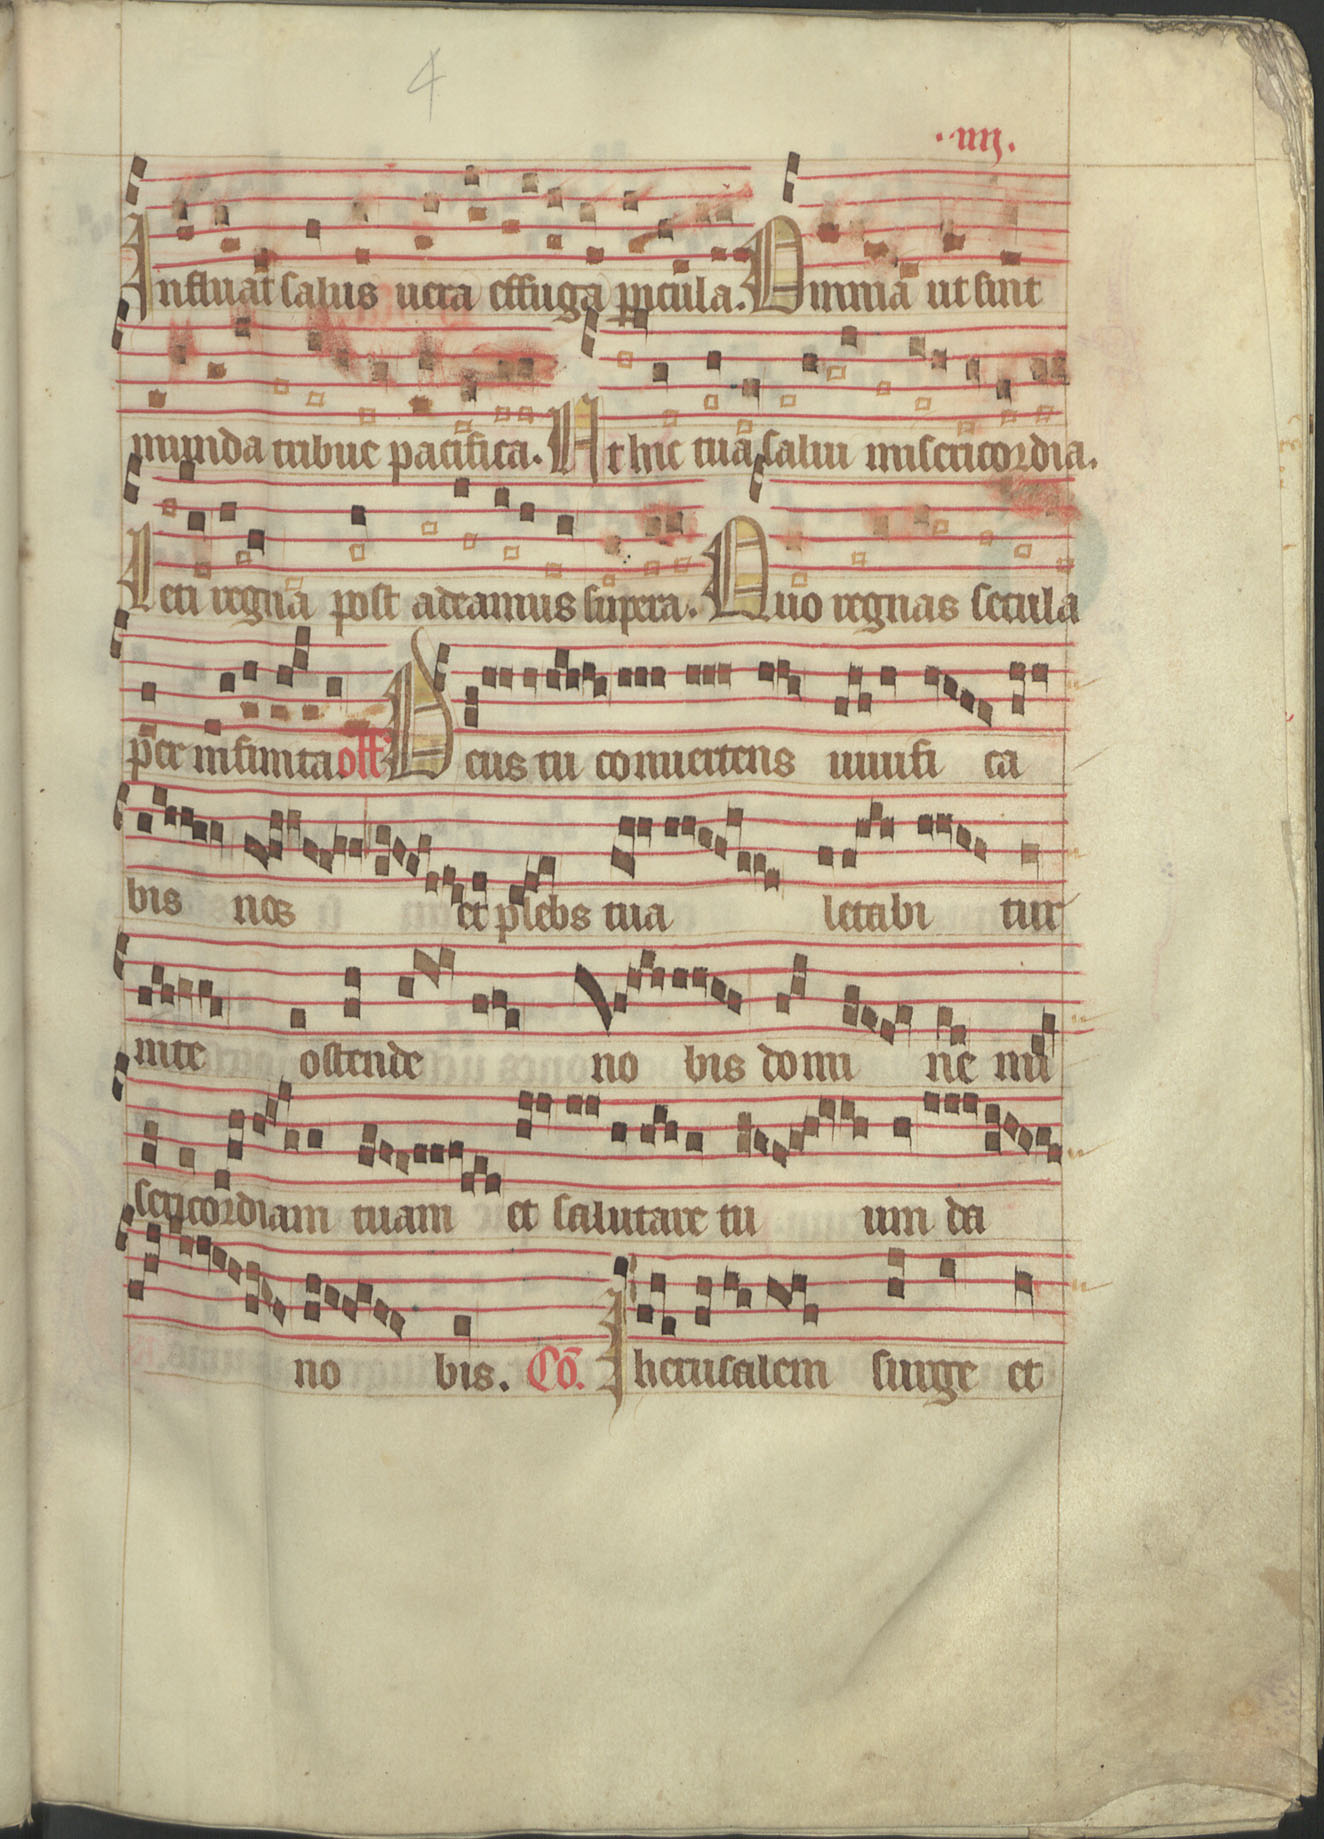 4
·iiij.
Influat salus uera effuga pericula. Omnia ut sint
munda tribue pacifica. Ut hic tua salui misericordia.
Leti regna post adeamus supera. Quo regnas secula
per infinita off Deus tu conuertens uiuifi ca
bis nos et plebs tua letabi tur
inte ostende no bis domi ne mi
sericordiam tuam et salutare tu um da
no bis. Co. Iherusalem surge et